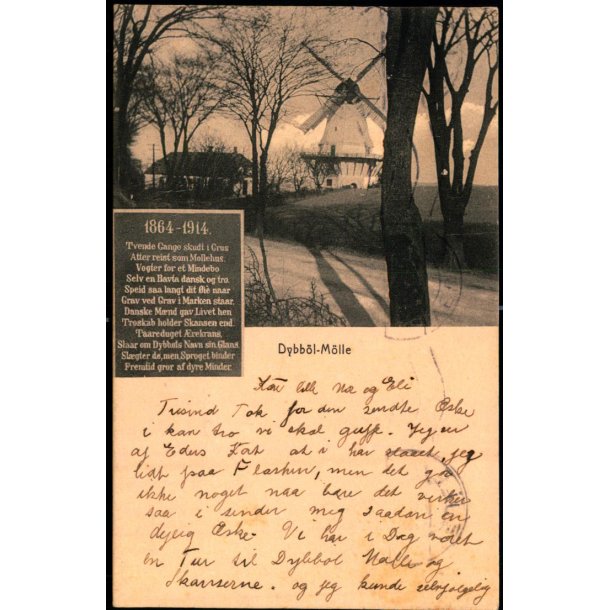 1864-1914.
Tvende Gange skudt i Grus
Atter rejst som Møllehus.
Vogter for et Mindebo
Selv en Bavta dansk og tro.
Speid saa langt dit Øie naar
Grav ved Grav i Marken staar,
Danske Mænd gav Livet hen
Troskab holder Skansen end.
Taareduget Ærekrans
Slaar om Dybbøls Navn sin Glans
Slægter de, men Sproget binder
Fremtid gror af dyre Minder.
Dybböl-Mölle
Kære lille og Eli
Tusind Tak for den sendte Æske
i kan tro vi skal guffe. Jeg
af Eders Kat at i har staaet, jeg
lidt paa Flasken, men det gør
ikke noget naa bare det virker
saa i sender mig saadan en
dejlig Æske. Vi har i Dag været
en Tur til Dybbøl Mølle og
Skanserne. og jeg kunde selvfølgelig